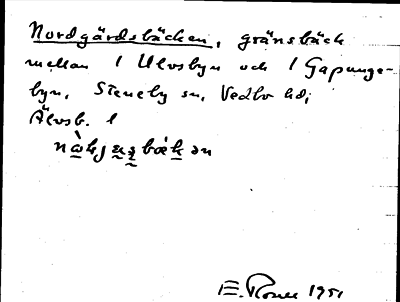 Nordgärdsbäcken, gränsbäck
mellan 1 Ulvsbyn och 1 Gapunge-
byn, Steneby sn, Vedbo hd,
Älvsb. l
E. Rosell 1951